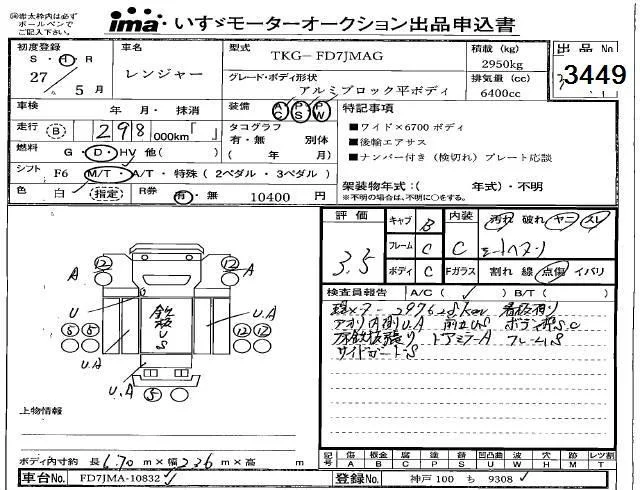 ㊟赤太枠内は必ず
ボールペンで
ご記入下さい。
ima いすゞモーターオークション出品申込書
初度登録 車名 型式 TKG-FD7JMAG 積載(kg) 出品No
S・H・R レンジャー 2950kg 3449
27 年 5月 グレード・ボディ形状 アルミブロック平ボディ 排気量(cc)
6400cc
車検 年・月・抹消 装備 AC PS PW 特記事項
走行 B 298,000km「 」 タコグラフ ■ワイド×6700ボディ
有・無 別体 ■後輪エアサス
燃料 G・D・HV 他( ) ( 年 月) ■ナンバー付き(検切れ)プレート応談
シフト F6 M/T・A/T・特殊(2ペダル・3ペダル)
架装物年式:( 年式)・不明
色 白 指定 R券 有・無 10400円 ※不明の場合は、不明に○をする。
評価 キャブ B 内装 汚れ 破れ ヤニ スレ
3.5 フレーム C C
ボディ C Fガラス 割れ 線 点傷 イバリ
検査員報告 A/C( ✓ ) B/T( )
アオリ内側U.A
サイドガードS
12 12
A A
U
鉄板US
U.A
5 5 12 12
U.A
U.A
5
上物情報
ボディ内寸約 長6.70m×幅2.36m×高 m
記号 傷A 板金B 腐C 塗P 錆S 凹凸曲U 波W 穴H 跡M レンタ割T
車台No. FD7JMA-10832 登録No. 神戸 100 ち 9308